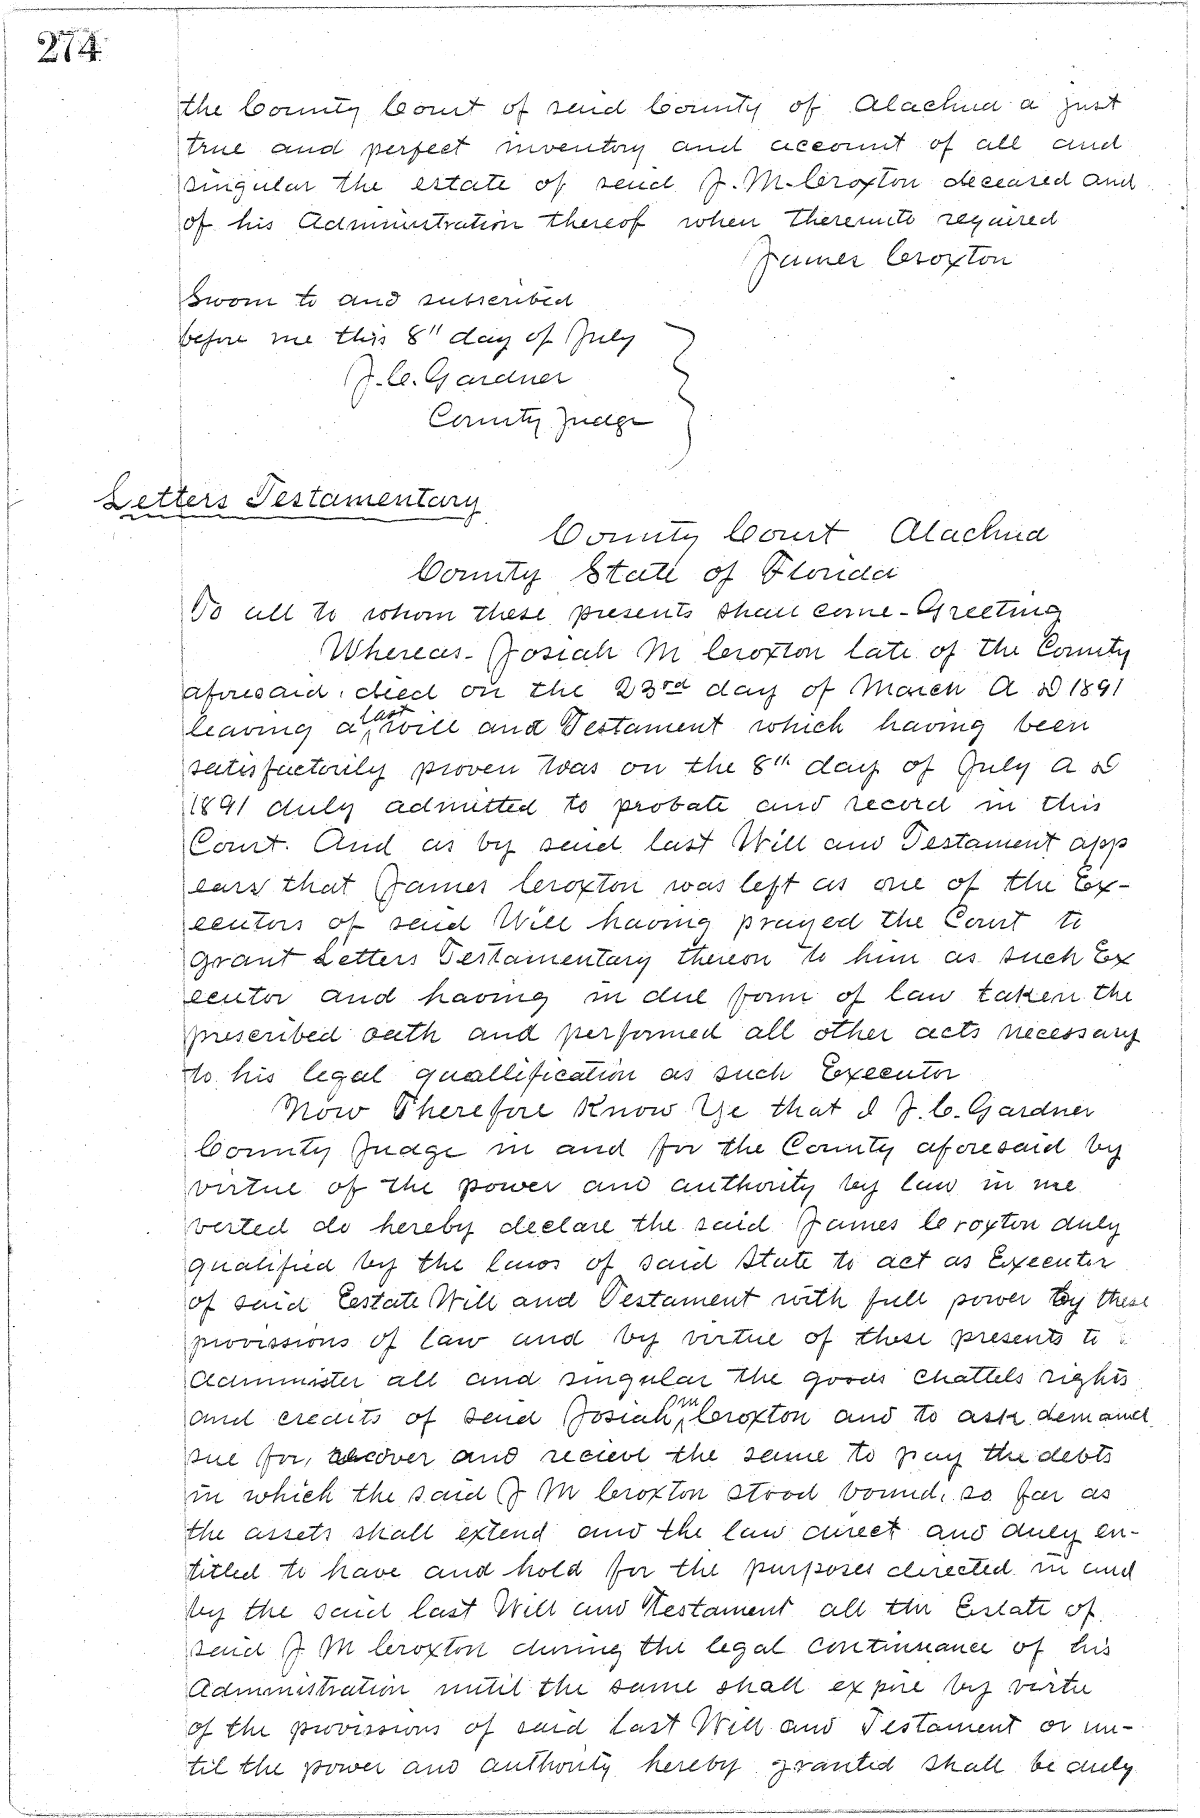 274
the County Court of said County of Alachua a just
true and perfect inventory and account of all and
singular the estate of said J. M. Croxton deceased and
of his Administration thereof when thereunto required
James Croxton
Sworn to and subscribed
before me this 8" day of July
J. C. Gardner
County Judge
Letters Testamentary
County Court Alachua
County State of Florida
To all to whom these presents shall come - Greeting
Whereas - Josiah M Croxton late of the County
aforesaid, died on the 23rd day of March A D 1891
leaving a last will and Testament which having been
satisfactorily proven was on the 8th day of July A D
1891 duly admitted to probate and record in this
Court. And as by said last Will and Testament app
ears that James Croxton was left as one of the Ex-
ecutors of said Will having prayed the Court to
grant Letters Testamentary thereon to him as such Ex
ecutor and having in due form of law taken the
prescribed oath and performed all other acts necessary
to his legal quallification as such Executor
Now Therefore Know Ye that I J. C. Gardner
County Judge in and for the County aforesaid by
virtue of the power and authority by law in me
vested do hereby declare the said James Croxton duly
qualified by the laws of said State to act as Executor
of said Eestate Will and Testament with full power by these
provissions of law and by virtue of these presents to
Administer all and singular the goods chattels rights
and credits of said Josiah M Croxton and to ask demand
sue for, recover and recieve the same to pay the debts
in which the said J M Croxton stood bound, so far as
the assets shall extend and the law direct and duly en-
titled to have and hold for the purposes directed in and
by the said last Will and Testament all the Estate of
said J M Croxton during the legal continuance of his
Administration until the same shall expire by virtu
of the provissions of said last Will and Testament or un-
til the power and authority hereby granted shall be duly